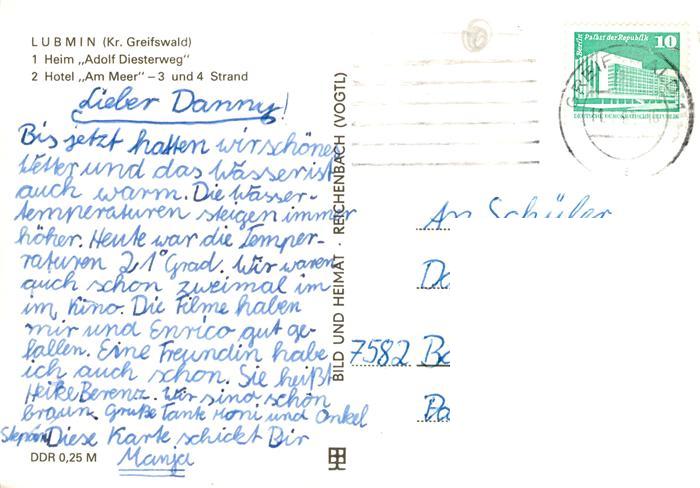 LUBMIN (Kr. Greifswald)
1 Heim „Adolf Diesterweg"
2 Hotel „Am Meer" – 3 und 4 Strand
Lieber Danny!
Bis jetzt hatten wir schönes
Wetter und das Wasser ist
auch warm. Die Wasser-
temperaturen steigen immer
höher. Heute war die Temper-
raturen 21° Grad. Wir waren
auch schon zweimal im
im Kino. Die Filme haben
mir und Enrico gut ge-
fallen. Eine Freundin habe
ich auch schon. Sie heißt
Heike Berenz. Wir sind schon
braun. Grüße Tante Moni und Onkel
Stephan
Diese Karte schickt Dir
Manja
DDR 0,25 M
BILD UND HEIMAT · REICHENBACH (VOGTL)
Berlin Palast der Republik 10
DEUTSCHE DEMOKRATISCHE REPUBLIK
An Schüler
7582